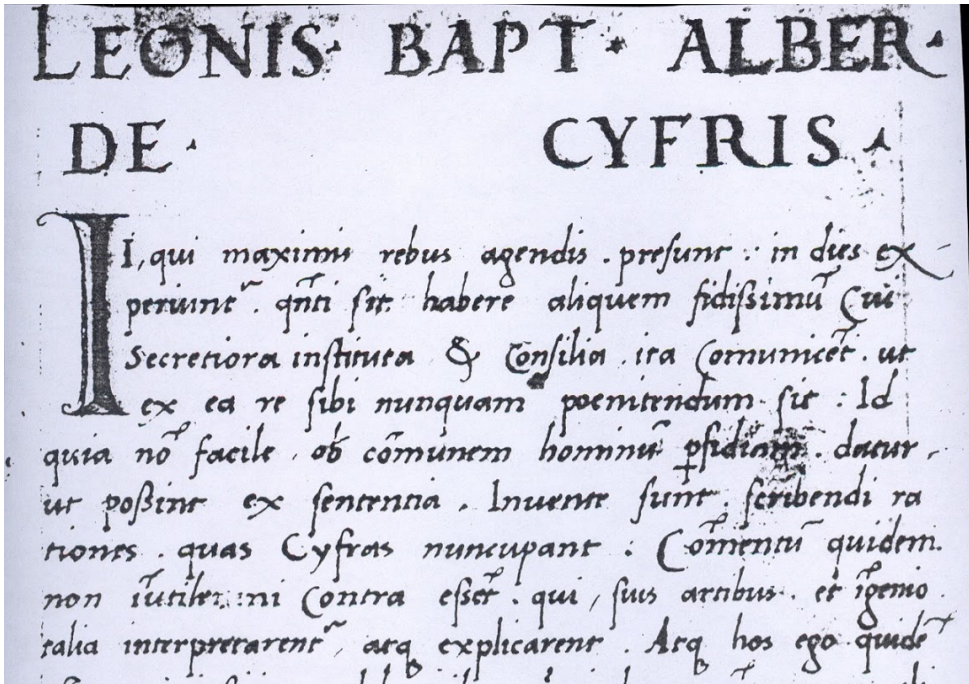 LEONIS· BAPT· ALBER·
DE· CYFRIS·
II, qui maximis rebus agendis . presunt : in dies ex
periunt᷑ . qñti sit habere aliquem fidißimū Cui
Secretiora instituta & Consilia ita Comunicēt . ut
ex ea re sibi nunquam poenitendum sit : Id
quia nō facile ob cōmunem hominū ꝑfidiam . datur ,
ut poßint ex sententia . Invente sunt scribendi ra
tiones . quas Cyfras nuncupant : Cōmentū quidem
non īutile : ni Contra essēt . qui , suis artibus . et īgenio
talia interpretarent᷑ atq explicarent . Atq hos ego quidē